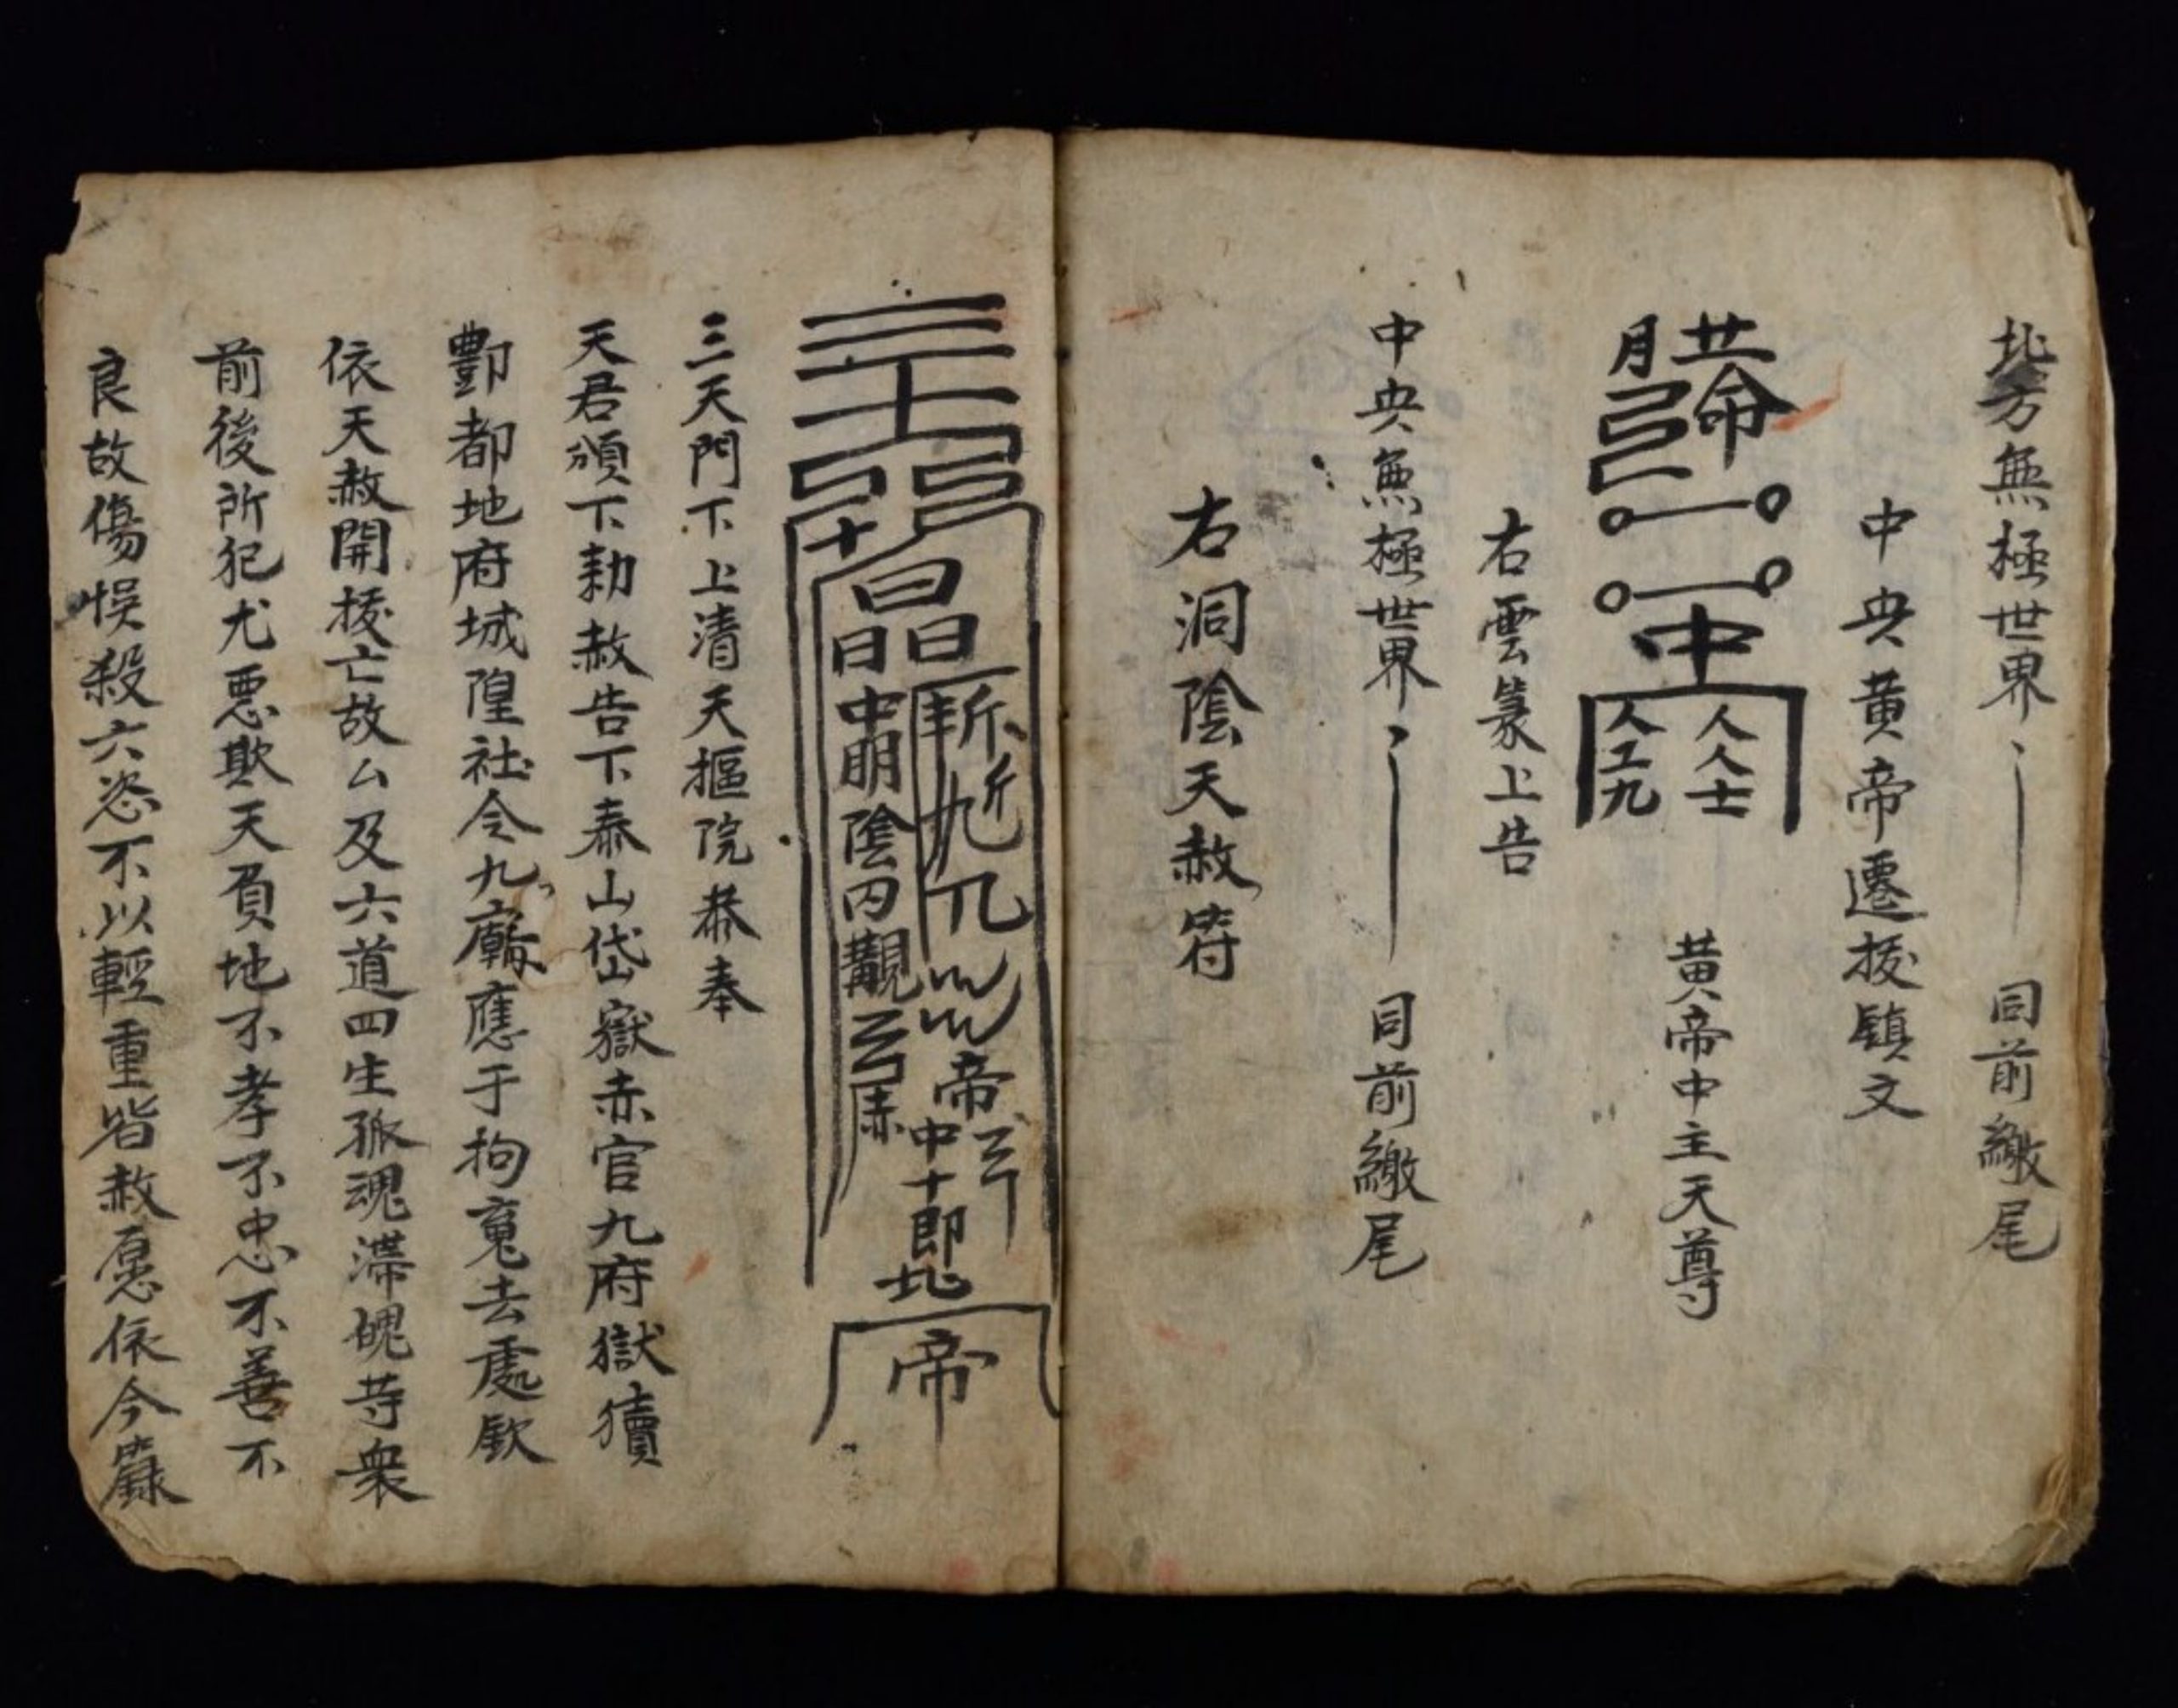 北方無極世界〻 同前繳尾
中央黄帝遷拔鎮文
黄帝中主天尊
右雲篆上告
中央無極世界〻 同前繳尾
右洞陰天赦符
三天門下上清天摳院恭奉
天君頒下勑赦告下泰山岱嶽赤官九府獄犢
酆都地府城隍社令九廟應于拘䰟去處欽
依天赦開拔亡故厶及六道四生孤魂滞魄等衆
前後所犯尤悪欺天負地不孝不忠不善不
良故傷悮殺六恣不以輕重皆赦愿依今籙